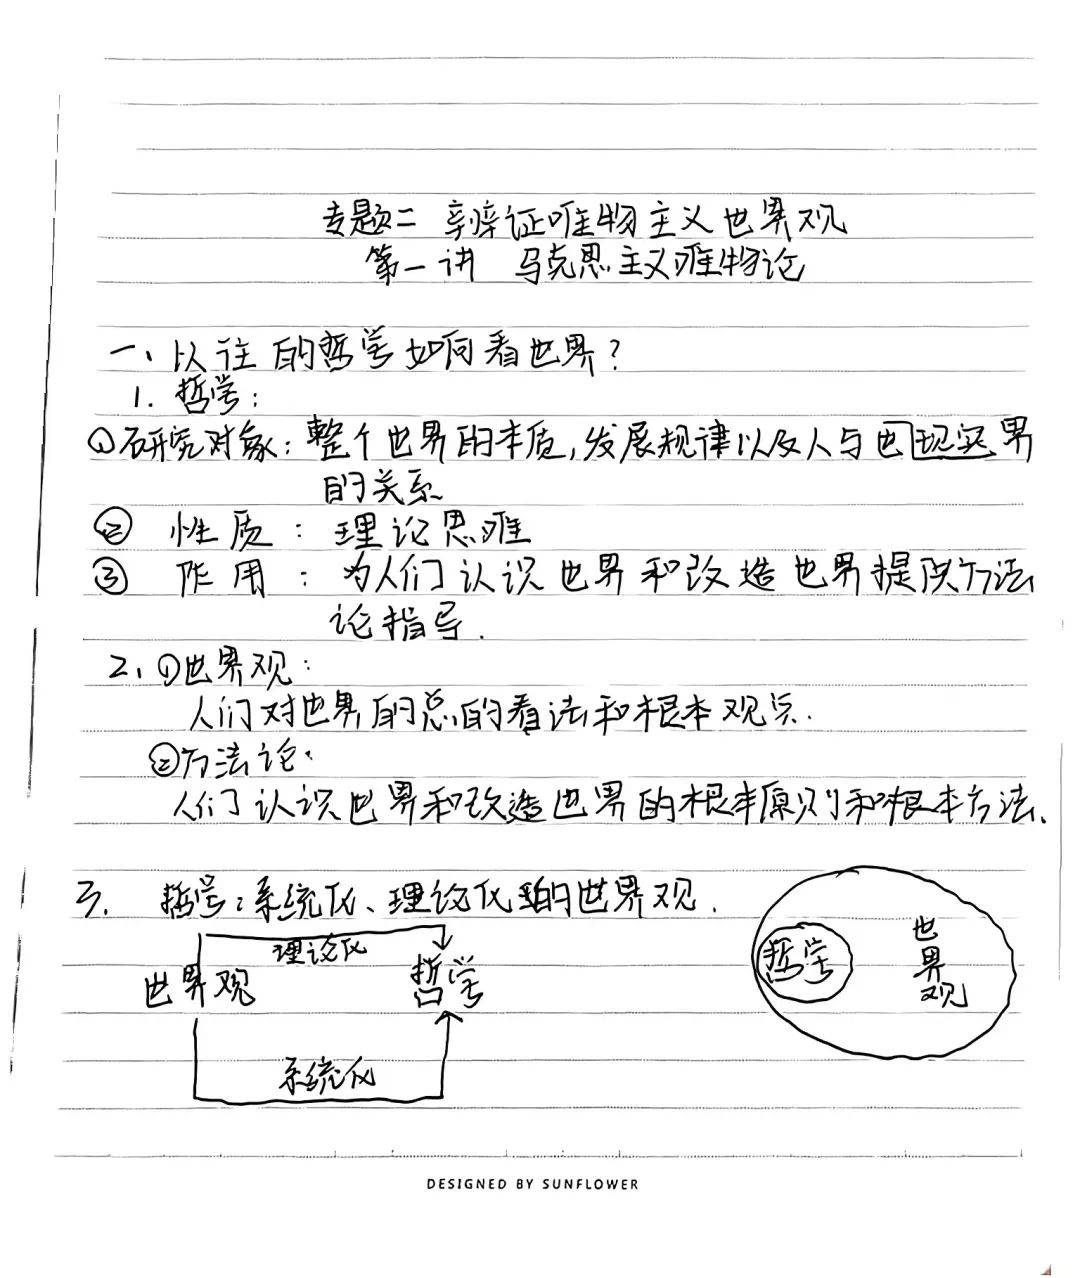 专题二 辩证唯物主义世界观
第一讲 马克思主义唯物论
一、以往的哲学如何看世界?
1. 哲学:
①研究对象:整个世界的本质,发展规律以及人与世现实界
的关系
② 性质:理论思维
③ 作用:为人们认识世界和改造世界提供方法
论指导.
2、①世界观:
人们对世界的总的看法和根本观点.
②方法论:
人们认识世界和改造世界的根本原则和根本方法、
3. 哲学:系统化、理论化的世界观.
理论化
世界观 哲学
系统化
哲学
世界观
DESIGNED BY SUNFLOWER